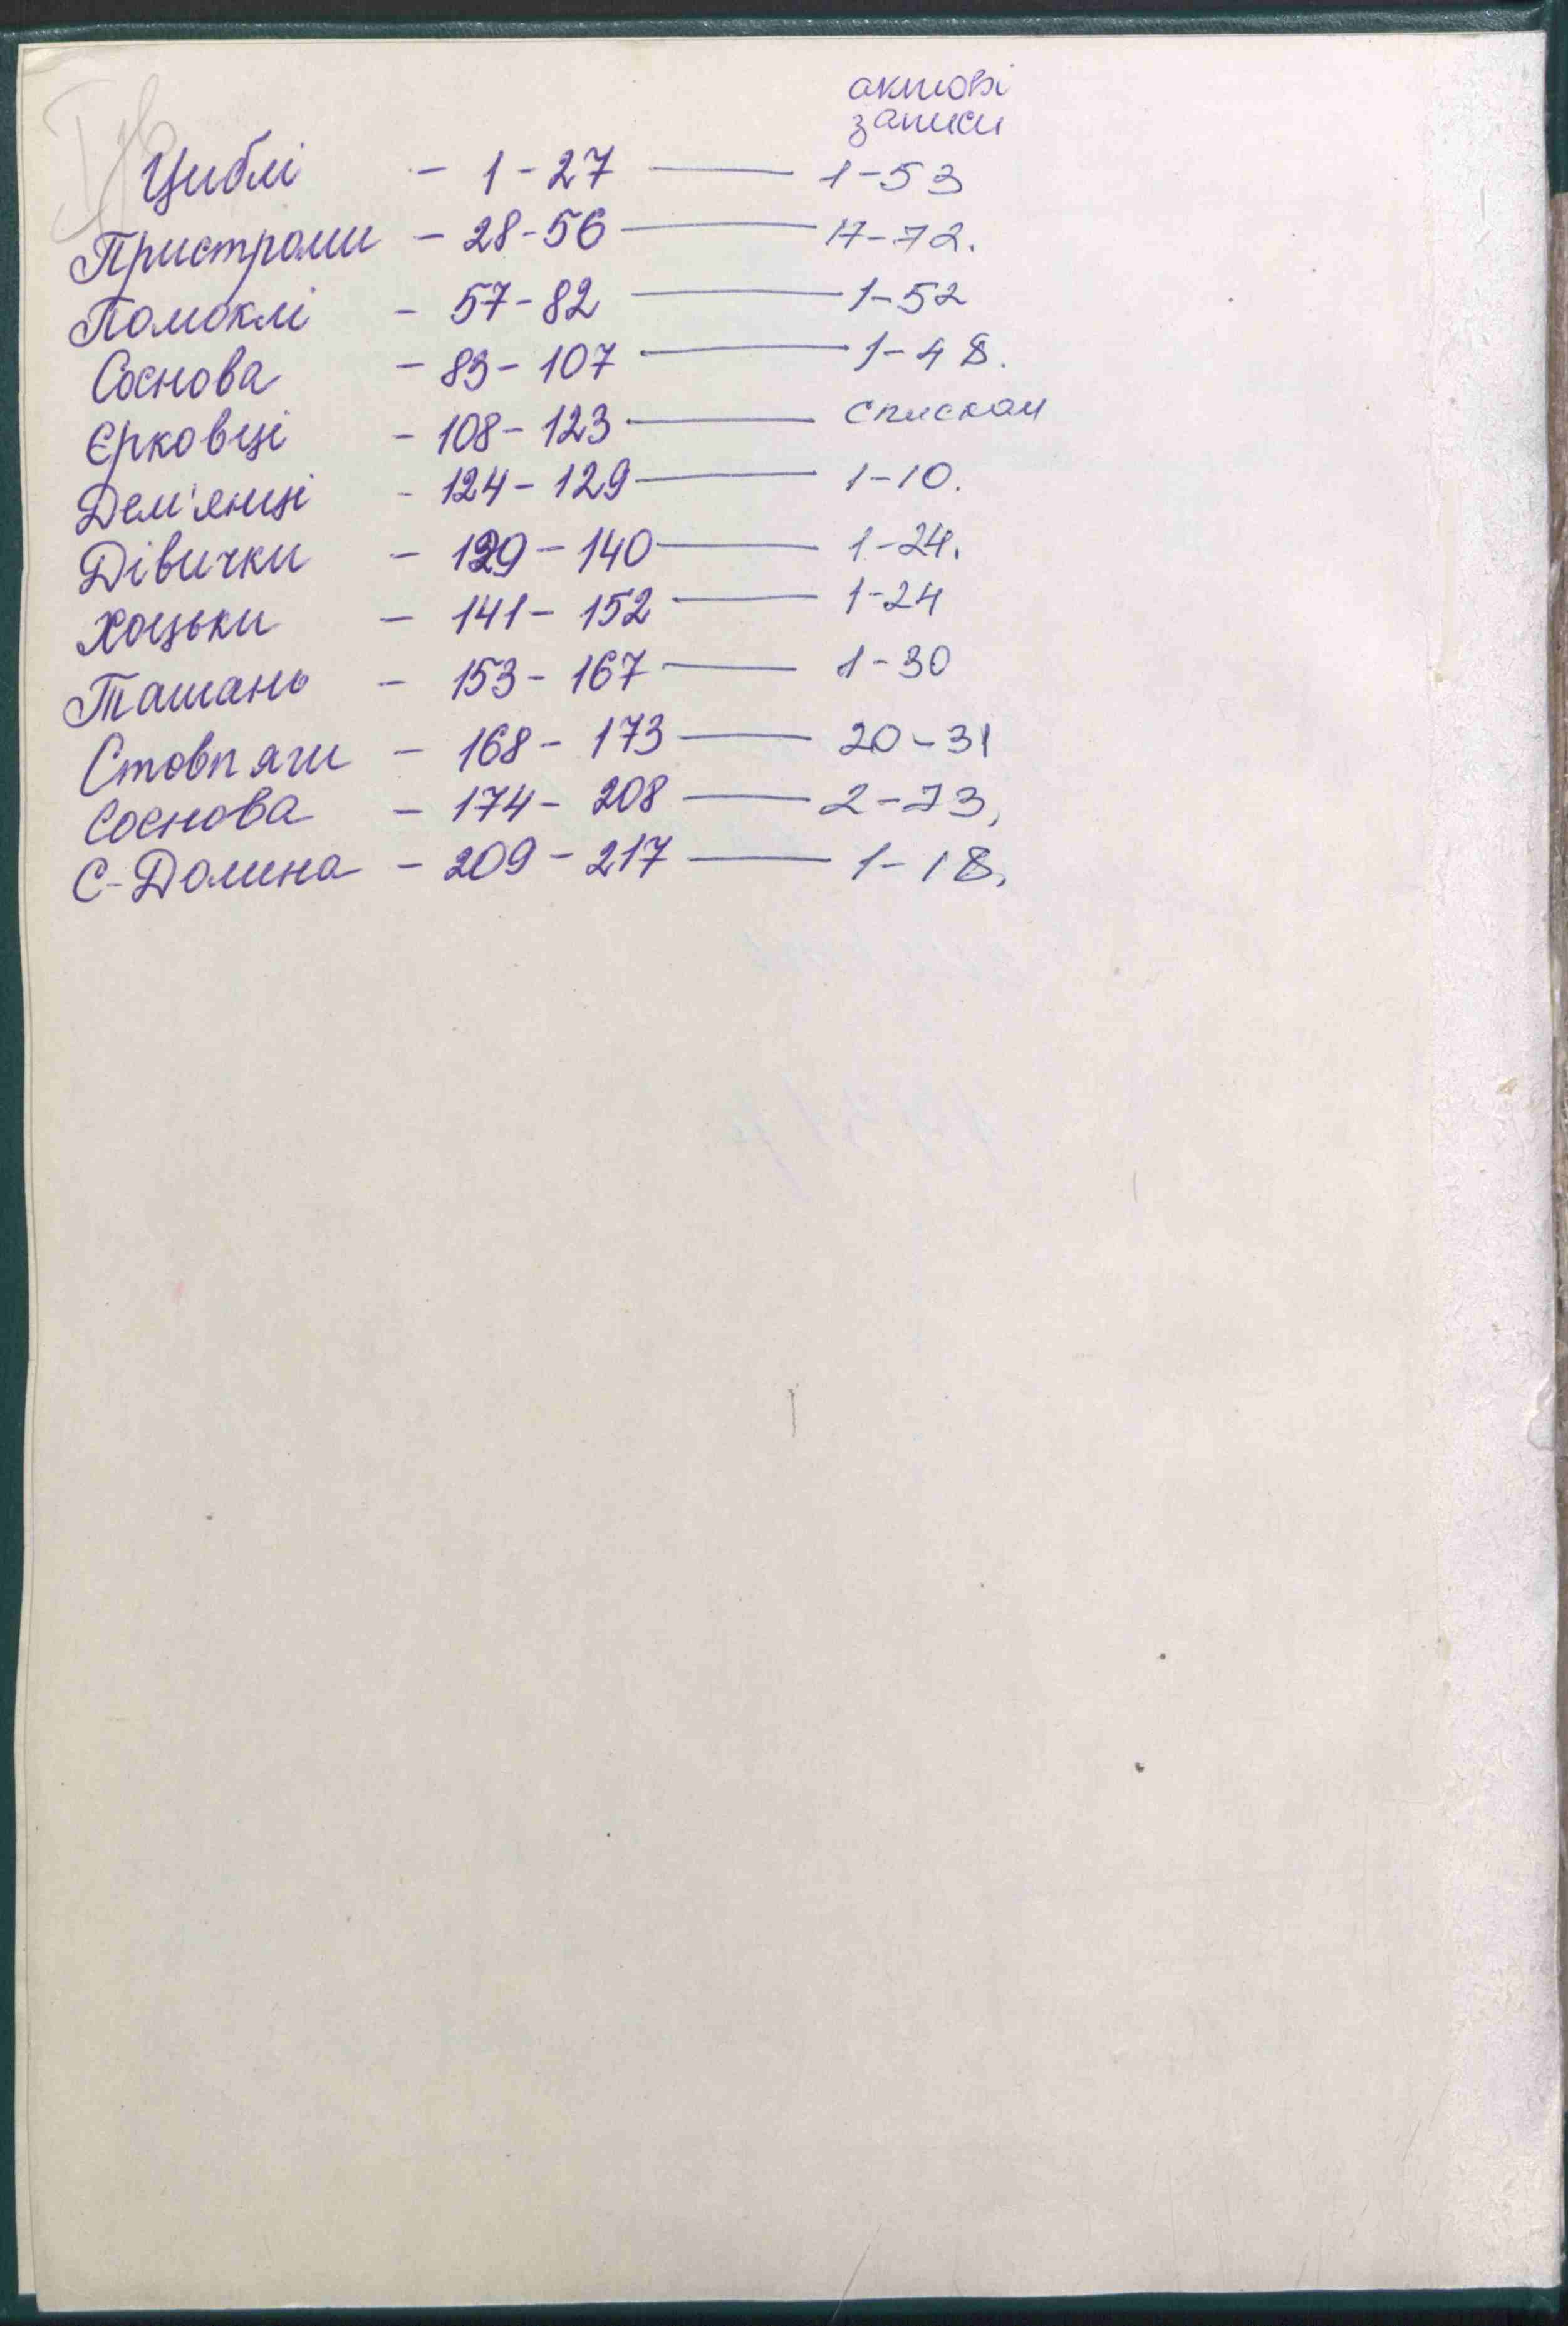 актові
записи
Циблі - 1-27 — 1-53
Пристроми - 28-56 — 17-72.
Помоклі - 57-82 — 1-52
Соснова - 83-107 — 1-48.
Єрковці - 108-123 — списком
Дем'янці - 124-129 — 1-10.
Дівички - 129-140 — 1-24.
Хоцьки - 141-152 — 1-24
Ташань - 153-167 — 1-30
Стовпяги - 168-173 — 20-31
Соснова - 174-208 — 2-73,
С-Долина - 209-217 — 1-18,